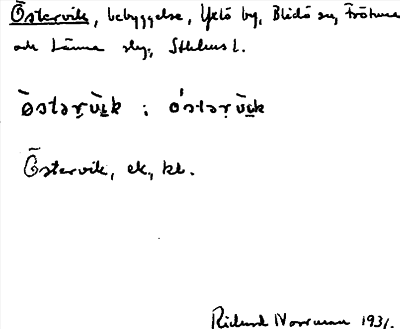 Östervik, bebyggelse, Yxlö by, Blidö sn, Frötuna
och Länna skg, Sthlms l.
östərvik ; östərvik
Östervik, ek, kt.
Rickard Norrman 1931.